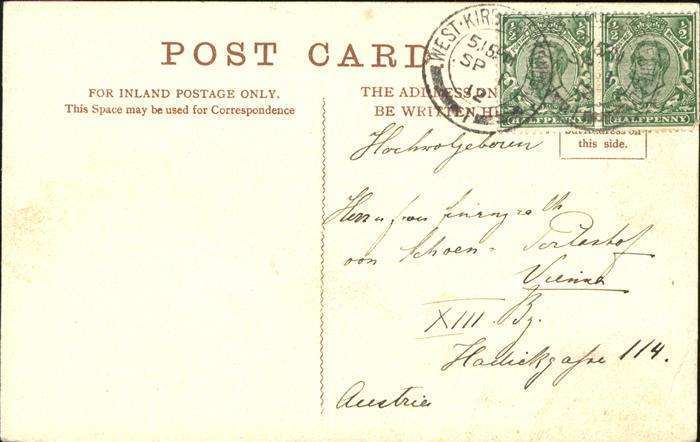 POST CARD
FOR INLAND POSTAGE ONLY.
This Space may be used for Correspondence
THE ADDRESS ON
BE WRITTEN HE
WEST·KIRB
5.15P
SP
12
1/2 1/2 1/2
HALFPENNY HALFPENNY
but Address on
this side.
Hochwolgeboren
Herrn
von Schoen-
Vienna
XIII. Bz.
Hadickgasse 114.
Austria